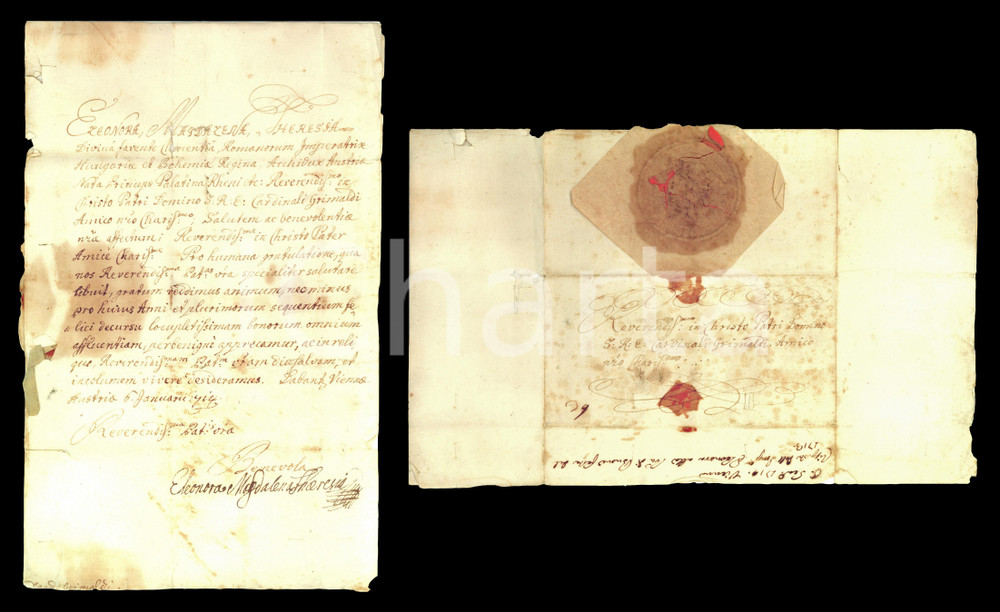 Eleonora, Magdalena, Theresia
Divinâ favente Clementia Romanorum Imperatrix
Hungariæ et Bohemiæ Regina, Archidux Austriæ
Nata Princeps Palatina Rheni etc: Reverendis:mo in
Christo Patri Domino S. R. E. Cardinali Grimaldi
Amico nro Charis:mo, Salutem ac benevolentiæ
nræ affectum: Reverendis:me in Christo Pater
Amice Charis:me Pro humana gratulatione, qua
nos Reverendis:ma Pat:tas vra specialiter salutare
libuit, gratum reddimus animum, nec minus
pro huius Anni et plurimorum sequentium fe
lici decursu locupletissimam bonorum omnium
affluentiam, benigne apprecamur, ac in reli
quo, Reverendis:mam Pat:tem vtam diu salvam, et
incolumem vivere desideramus. Dabant Viennæ
Austriæ 6 Januarii 1714.
Reverendis:mæ Pat:tis vræ
Benevola
Eleonora Magdalena Theresia
Card: Grimaldi
Reverendis:mo in Christo Patri Domino
S. R. E. Cardinali Grimaldi, Amico
nro Charis:mo
1714. Vienna
1713
charta